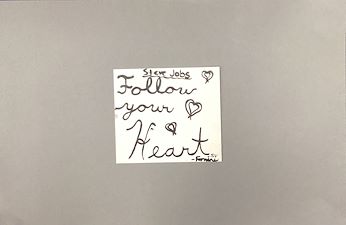 Steve Jobs
Follow
your
Heart